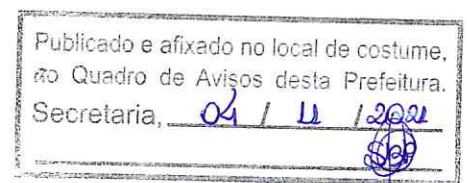 Publicado e afixado no local de costume,
no Quadro de Avisos desta Prefeitura.
Secretaria, 04 / 11 / 2021